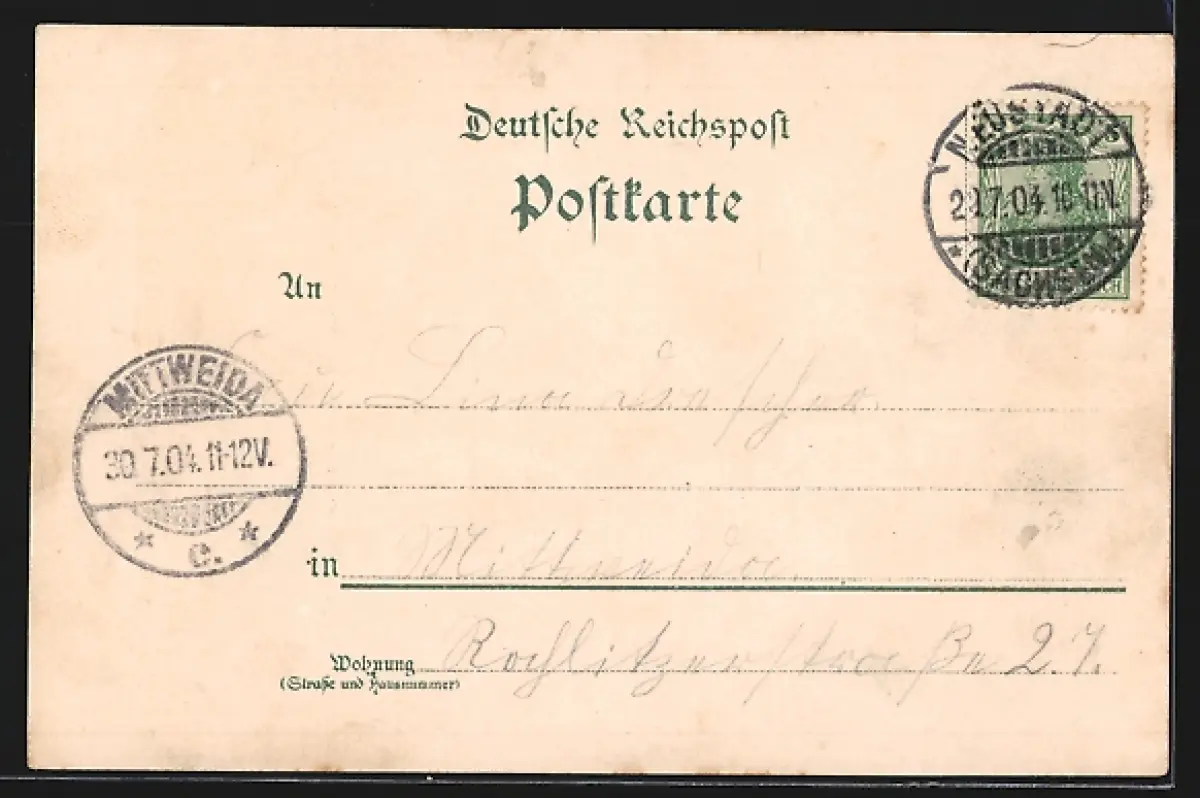 Deutsche Reichspost
Postkarte
NEUSTADT
29.7.04.10-11N.
* (SACHSEN)
An
Lina
MITTWEIDA
30.7.04.11-12V.
* C. *
in Mittweida
Wohnung Rochlitzerstraße 27.
(Straße und Hausnummer)